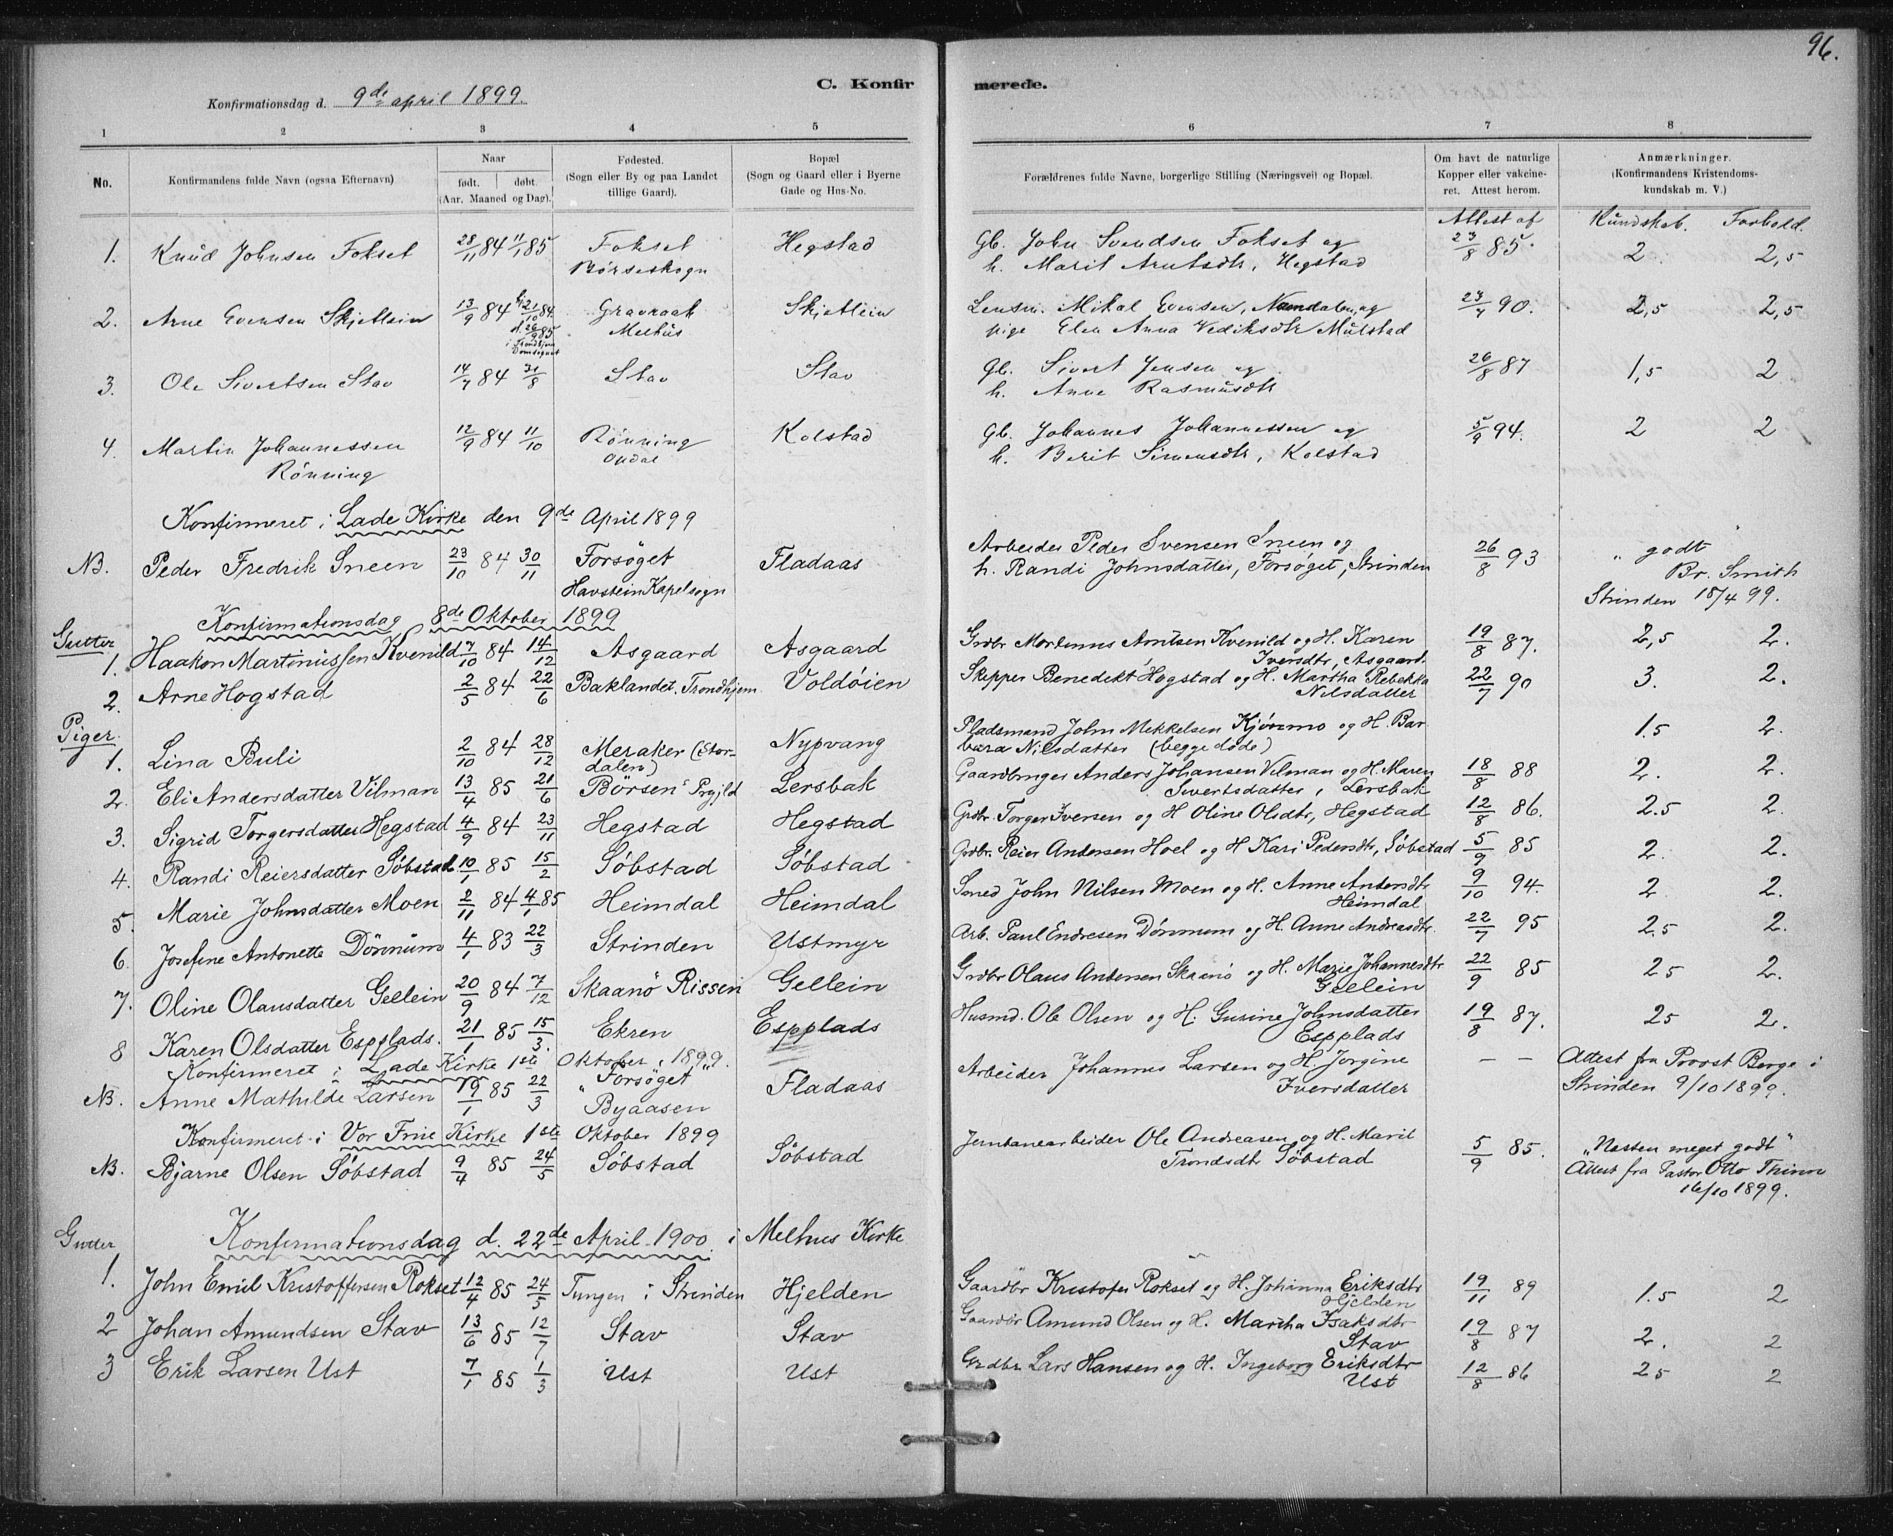 96.
C. Konfirmerede.
Konfirmationsdag d. 9de april 1899.
1 2 3 4 5 6 7 8
No.
Konfirmandens fulde Navn (ogsaa Efternavn)
Naar
født. døbt.
(Aar. Maaned og Dag).
Fødested.
(Sogn eller By og paa Landet
tillige Gaard).
Bopæl
(Sogn og Gaard eller i Byerne
Gade og Hus-No.
Forældrenes fulde Navne, borgerlige Stilling (Næringsvei) og Bopæl.
Om havt de naturlige
Kopper eller vakcine-
ret. Attest herom.
Anmærkninger.
(Konfirmandens Kristendoms-
kundskab m. V.)
Attest af Kundskab. Forhold.
1. Knud Johnsen Fokset 28/11 84 11/1 85 Fokset Hegstad Gb. John Svendsen Fokset og 23/8 85. 2 2,5
Børseskogn h. Marit Arntsdtr, Hegstad
2. Arne Evensen Skjetlein 13/9 84 21/10 84 Gravraak Skjetlein Lensm. Mikal Evensen, Namdalen, og 23/7 90. 2,5 2,5
26/9 85 Melhus pige Elen Anna Vediksdtr Mulstad
3. Ole Sivertsen Stav 14/7 84 31/8 Stav Stav Gb. Sivert Jensen og 26/8 87 1,5 2
h. Anne Rasmusdtr
4. Martin Johannessen 12/9 84 11/10 Rønning Kolstad Gb. Johannes Johannessen og 5/9 94. 2 2
Rønning Opdal h. Berit Simensdtr, Kolstad
Konfirmeret i Lade Kirke den 9de April 1899
NB. Peder Fredrik Sneen 23/10 84 30/11 Forsöget Fladaas Arbeider Peder Svensen Sneen og 26/8 93 " godt "
Havstein Kapelsogn h. Randi Johnsdatter, Forsøget, Strinden Br. Smith
Strinden 18/4 99.
Konfirmationsdag 8de Oktober 1899
Gutter
1. Haakon Martinussen Kvenild 7/10 84 14/12 Asgaard Asgaard Grdbr Mortinus Arntsen Kvenild og H. Karen 19/8 87. 2,5 2.
Iversdtr, Asgaard.
2. Arne Hogstad 2/5 84 22/6 Baklandet. Trondhjem Voldøien Skipper Benedekt Hogstad og H. Martha Rebekka 22/7 90 3. 2.
Nilsdatter
Piger
1. Lina Buli 2/10 84 28/12 Meraker (Stor- Nypvang Pladsmand John Mekkelsen Kjøremo og H. Bar 1.5 2.
dalen) bara Nilsdatter (begge døde)
2. Eli Andersdatter Vilman 13/4 85 21/6 Börsen Prgjld Lersbak Gaardbruger Anders Johansen Vilman og H. Maren 18/8 88 2. 2.
Sivertsdatter, Lersbak
3. Sigrid Torgersdatter Hegstad 4/9 84 23/11 Hegstad Hegstad Grdbr. Torger Iversen og H Oline Olsdtr, Hegstad 12/8 86. 2.5 2.
4. Randi Reiersdatter Søbstad 10/1 85 15/2 Söbstad Søbstad Grdbr. Reier Andersen Hoel og H Kari Pedersdtr, Søbstad 5/9 85 2. 2.
5. Marie Johnsdatter Moen 2/11 84 4/1 85 Heimdal Heimdal Smed John Nilsen Moen og H. Anne Andersdtr 9/10 94. 2. 2.
Heimdal
6. Josefine Antonette Dörmum 4/1 83 22/3 Strinden Ustmyr Arb. Paul Endresen Dørmum og H. Anne Andreasdtr. 22/7 95 2.5 2.
7. Oline Olausdatter Gellein 20/9 84 7/12 Skaanø Rissen Gellein Grdbr Olaus Andersen Skaanø og H. Marie Johannesdtr 22/9 85 2 5 2.
Gellein
8 Karen Olsdatter Espplads. 21/1 85 15/3. Ekren Espplads Husmd. Ole Olsen og H. Gurine Johnsdatter 19/8 87. 2 5 2.
Espplads
Konfirmeret i Lade Kirke 1ste Oktober 1899.
NB. Anne Mathilde Larsen 19/1 85 22/3 "Forsøget" Fladaas Arbeider Johannes Larsen og H. Jorgine — — Attest fra Provst Berge i
Byaasen Iversdatter Strinden 9/10 1899.
Konfirmeret i Vor Frue Kirke 1ste Oktober 1899
NB. Bjarne Olsen Söbstad 9/4 85 24/5 Söbstad Söbstad Jernbanearbeider Ole Andreasen og H. Marit 5/9 85. „Næsten meget godt"
Trondsdt Söbstad Attest fra Pastor Otto
16/10 1899.
Konfirmationsdag d. 22de April 1900. i Melhus Kirke
Gutter
1. John Emil Kristoffersen Rokset 12/4 85 24/5 Tungen i Strinden Hjelden Gaardbr Kristofer Rokset og H. Johanna Eriksdtr 19/11 89 1.5 2
Hjelden
2 Johan Amundsen Stav 13/6 85 12/7 Stav Stav Gaardbr Amund Olsen og H. Martha Isaksdtr 19/8 87 2. 2
Stav
3 Erik Larsen Ust 7/1 85 1/3 Ust Ust Grdbr Lars Hansen og H. Ingeborg Eriksdtr 12/8 86 2 5 2
Ust